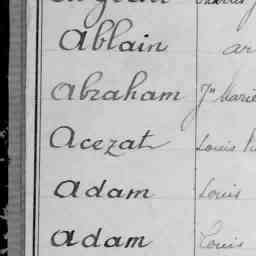 Ablain
Abraham Jn Marie
Acezat Louis
Adam Louis
Adam Louis